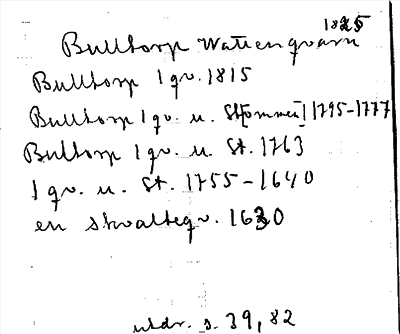 1825
Bulltorp Vattenqvarn
Bulltorp 1 qv. 1815
Bulltorp 1 qv. u. St[ommen] 1795-1777
Bulltorp 1 qv. u. St. 1763
1 qv. u. St. 1755-1640
en skvalteqv. 1630
utdr. s. 39, 82